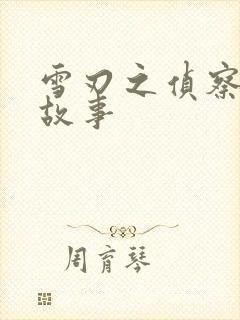 雪刃之偵察
故事
周育琴